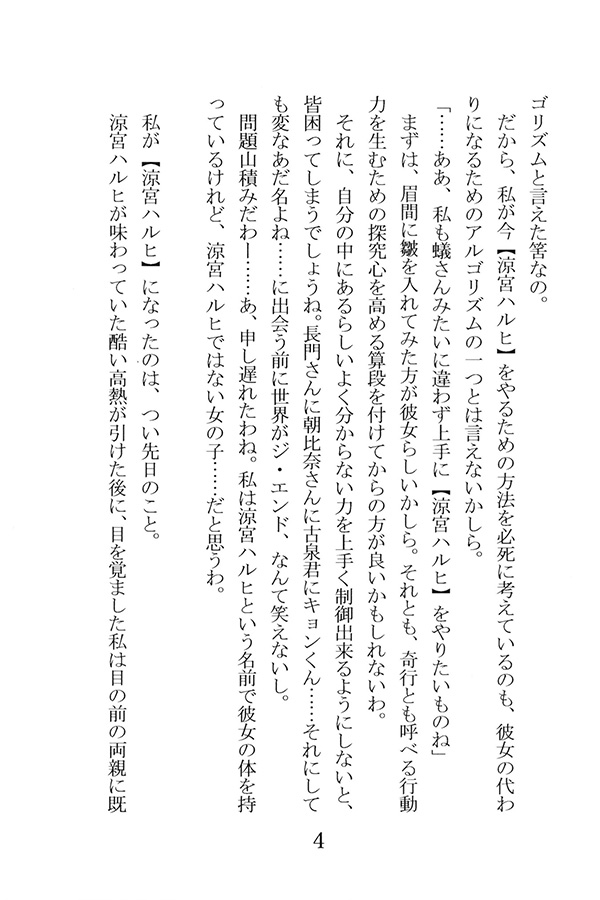 ゴリズムと言えた筈なの。
　だから、私が今【涼宮ハルヒ】をやるための方法を必死に考えているのも、彼女の代わ
りになるためのアルゴリズムの一つとは言えないかしら。
「……ああ、私も蟻さんみたいに違わず上手に【涼宮ハルヒ】をやりたいものね」
　まずは、眉間に皺を入れてみた方が彼女らしいかしら。それとも、奇行とも呼べる行動
力を生むための探究心を高める算段を付けてからの方が良いかもしれないわ。
　それに、自分の中にあるらしいよく分からない力を上手く制御出来るようにしないと、
皆困ってしまうでしょうね。長門さんに朝比奈さんに古泉君にキョンくん……それにして
も変なあだ名よね……に出会う前に世界がジ・エンド、なんて笑えないし。
　問題山積みだわー……あ、申し遅れたわね。私は涼宮ハルヒという名前で彼女の体を持
っているけれど、涼宮ハルヒではない女の子……だと思うわ。
　私が【涼宮ハルヒ】になったのは、つい先日のこと。
　涼宮ハルヒが味わっていた酷い高熱が引けた後に、目を覚ました私は目の前の両親に既
4